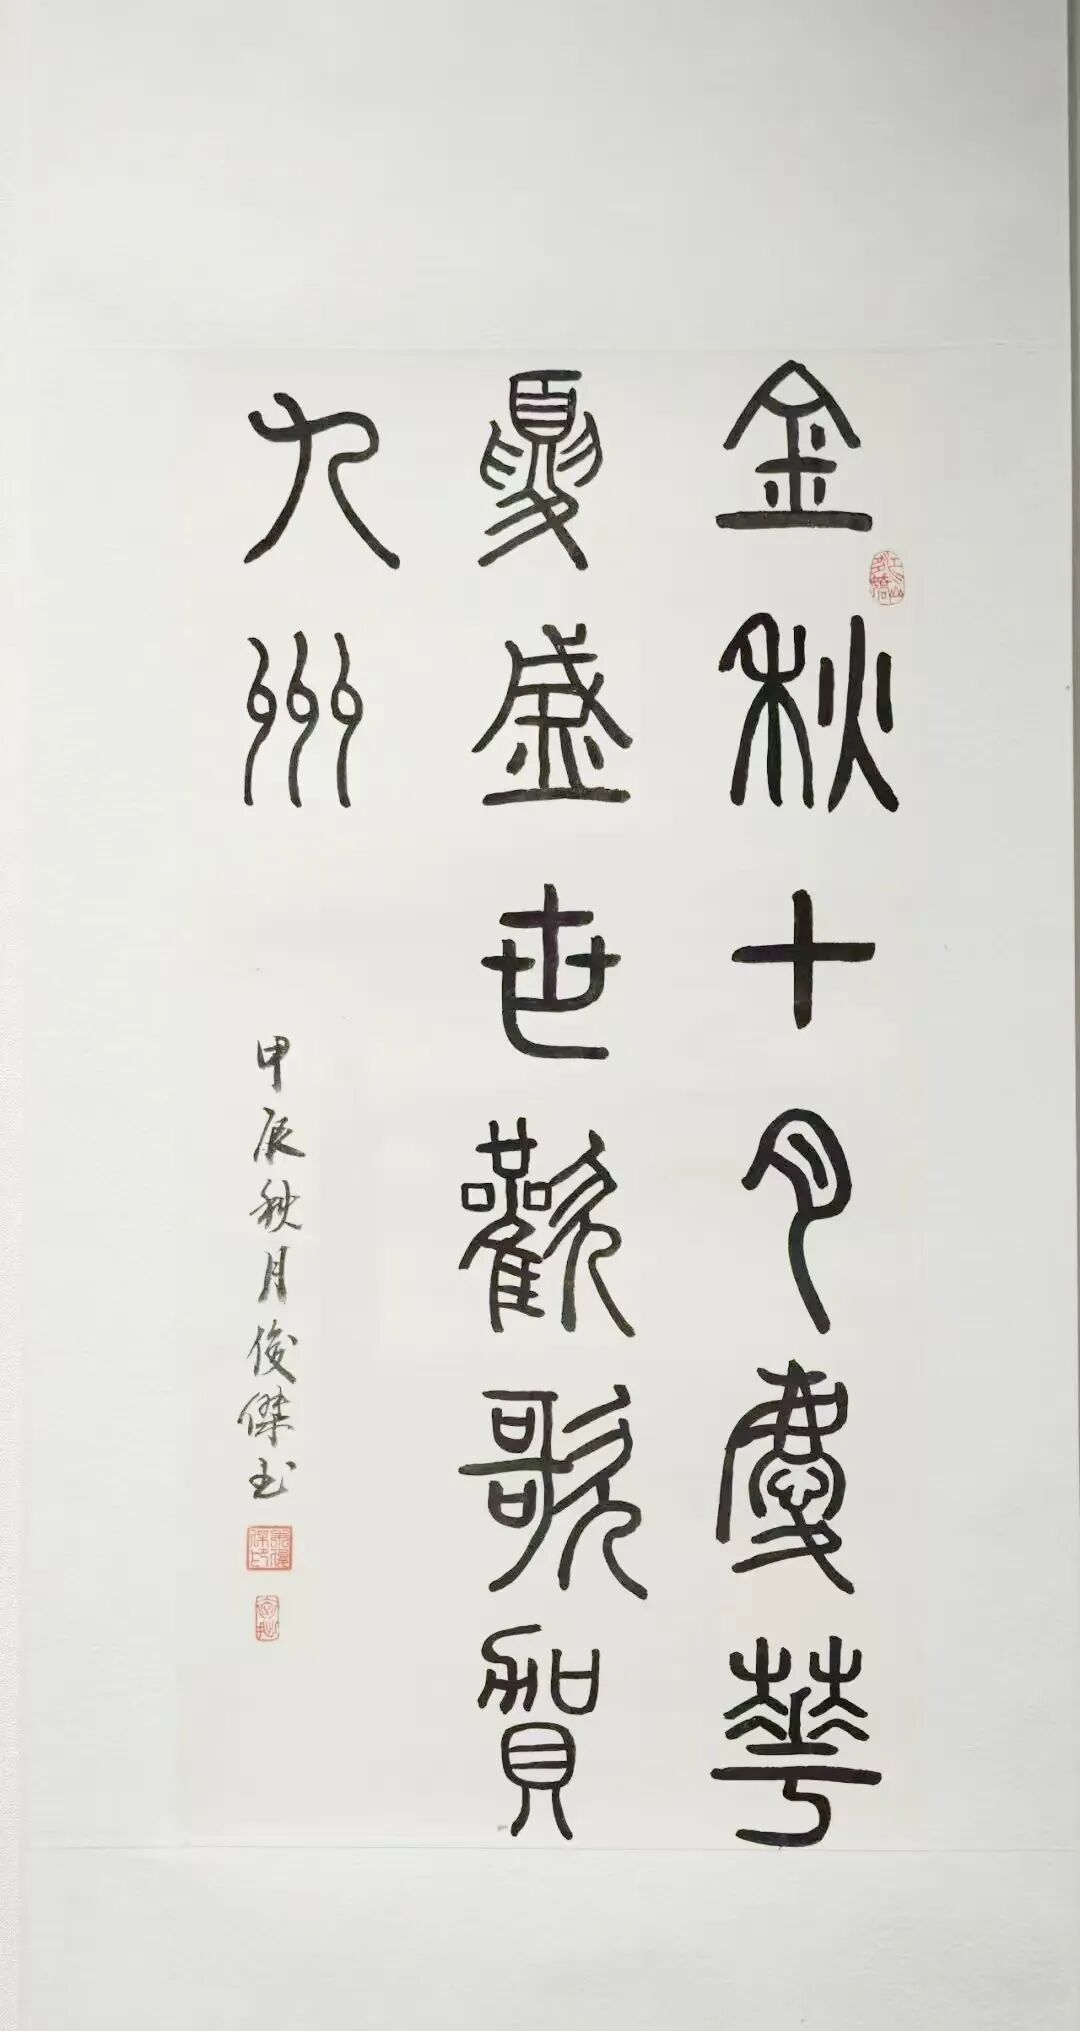 金秋十月慶華
夏盛世歡歌賀
九州
甲辰秋月俊傑书